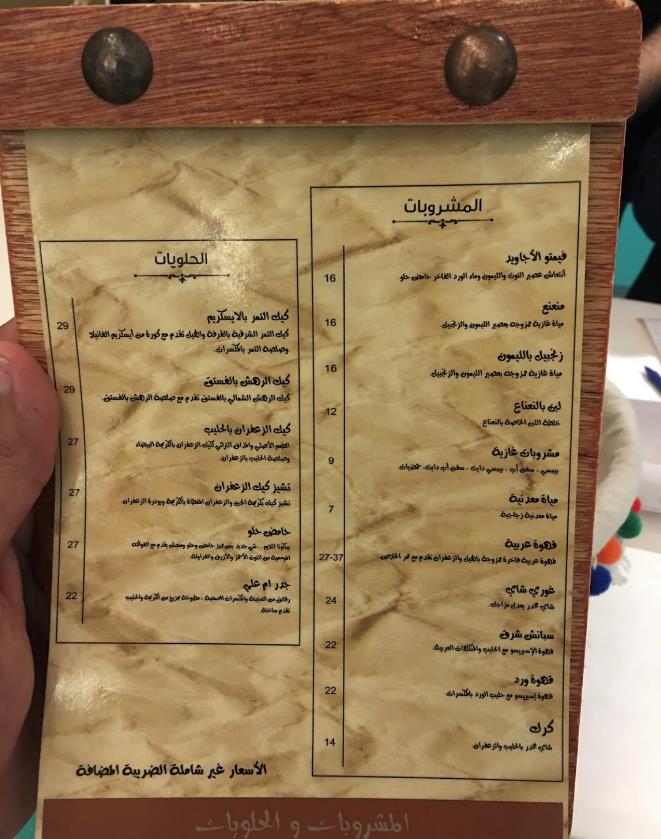 المشروبات
فيمتو الأجاويد
16
أنتعاش عصير التوت والليمون وماء الورد الفاخر حامض حلو.
منعنع
16
مياة غازية ممزوجه بعصير الليمون والزنجبيل
زنجبيل بالليمون
16
مياة غازية ممزوجه بعصير الليمون والزنجبيل.
لبن بالنعناع
12
خلطة اللبن الخاصة بالنعناع.
مشروبات غازية
9
بيبسي ، سفن أب ، بيبسي دايت ، سفن أب دايت، حمضيات
مياة معدنية
7
مياة معدنية زجاجية.
قهوة عربية
27-37
قهوة عربية فاخرة ممزوجة بالهيل والزعفران تقدم مع تمر الخلاص
غوري شاي
24
شاي مخدر يعدل مزاجك.
سبانش شرق
22
قهوة الإسبريسو مع الحليب والمنكهات العربية.
قهوة ورد
22
قهوة إسبريسو مع حليب الورد بالمكسرات.
كرك
14
شاي مخدر بالحليب والزعفران.
الحلويات
كيك التمر بالايسكريم
29
كيك التمر الشرقية بالقرفة والهيل تقدم مع كورة من ايسكريم الفانيلا
وصلصة التمر بالمكسرات.
كيك الرهش بالفستق
29
كيك الرهش الشمالي بالفستق تقدم مع صلصة الرهش بالفستق.
كيك الزعفران بالحليب
27
الطعم الأصلي والمذاق التراثي لكيك الزعفران بالكريمة البيضاء
وصلصة الحليب بالزعفران.
تشيز كيك الزعفران
27
تشيز كيك بكريمة الجبن والزعفران المغطاة بالكريمة وبودرة الزعفران
حامض حلو
27
شي جديد بس غير حامض وحلو ومنعش يقدم مع الفواكه
الموسمية من التوت الأحمر والأزرق والفراولة.
جدر ام علي
22
رقائق من العجينة والمكسرات المحمصة ، مطبوخة بمزيج من الكريمة والحليب
تقدم ساخنة.
الأسعار غير شاملة الضريبة المضافة
المشروبات و الحلويات